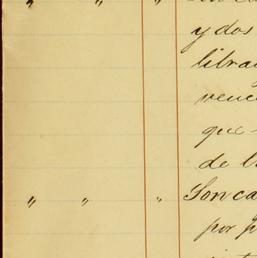 " " "
y dos
libra
venc
que
de l
" " " Son ca
por p